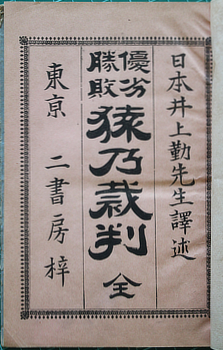 日本井上勤先生譯述
優劣
勝敗
猿乃裁判
全
東京 二書房梓